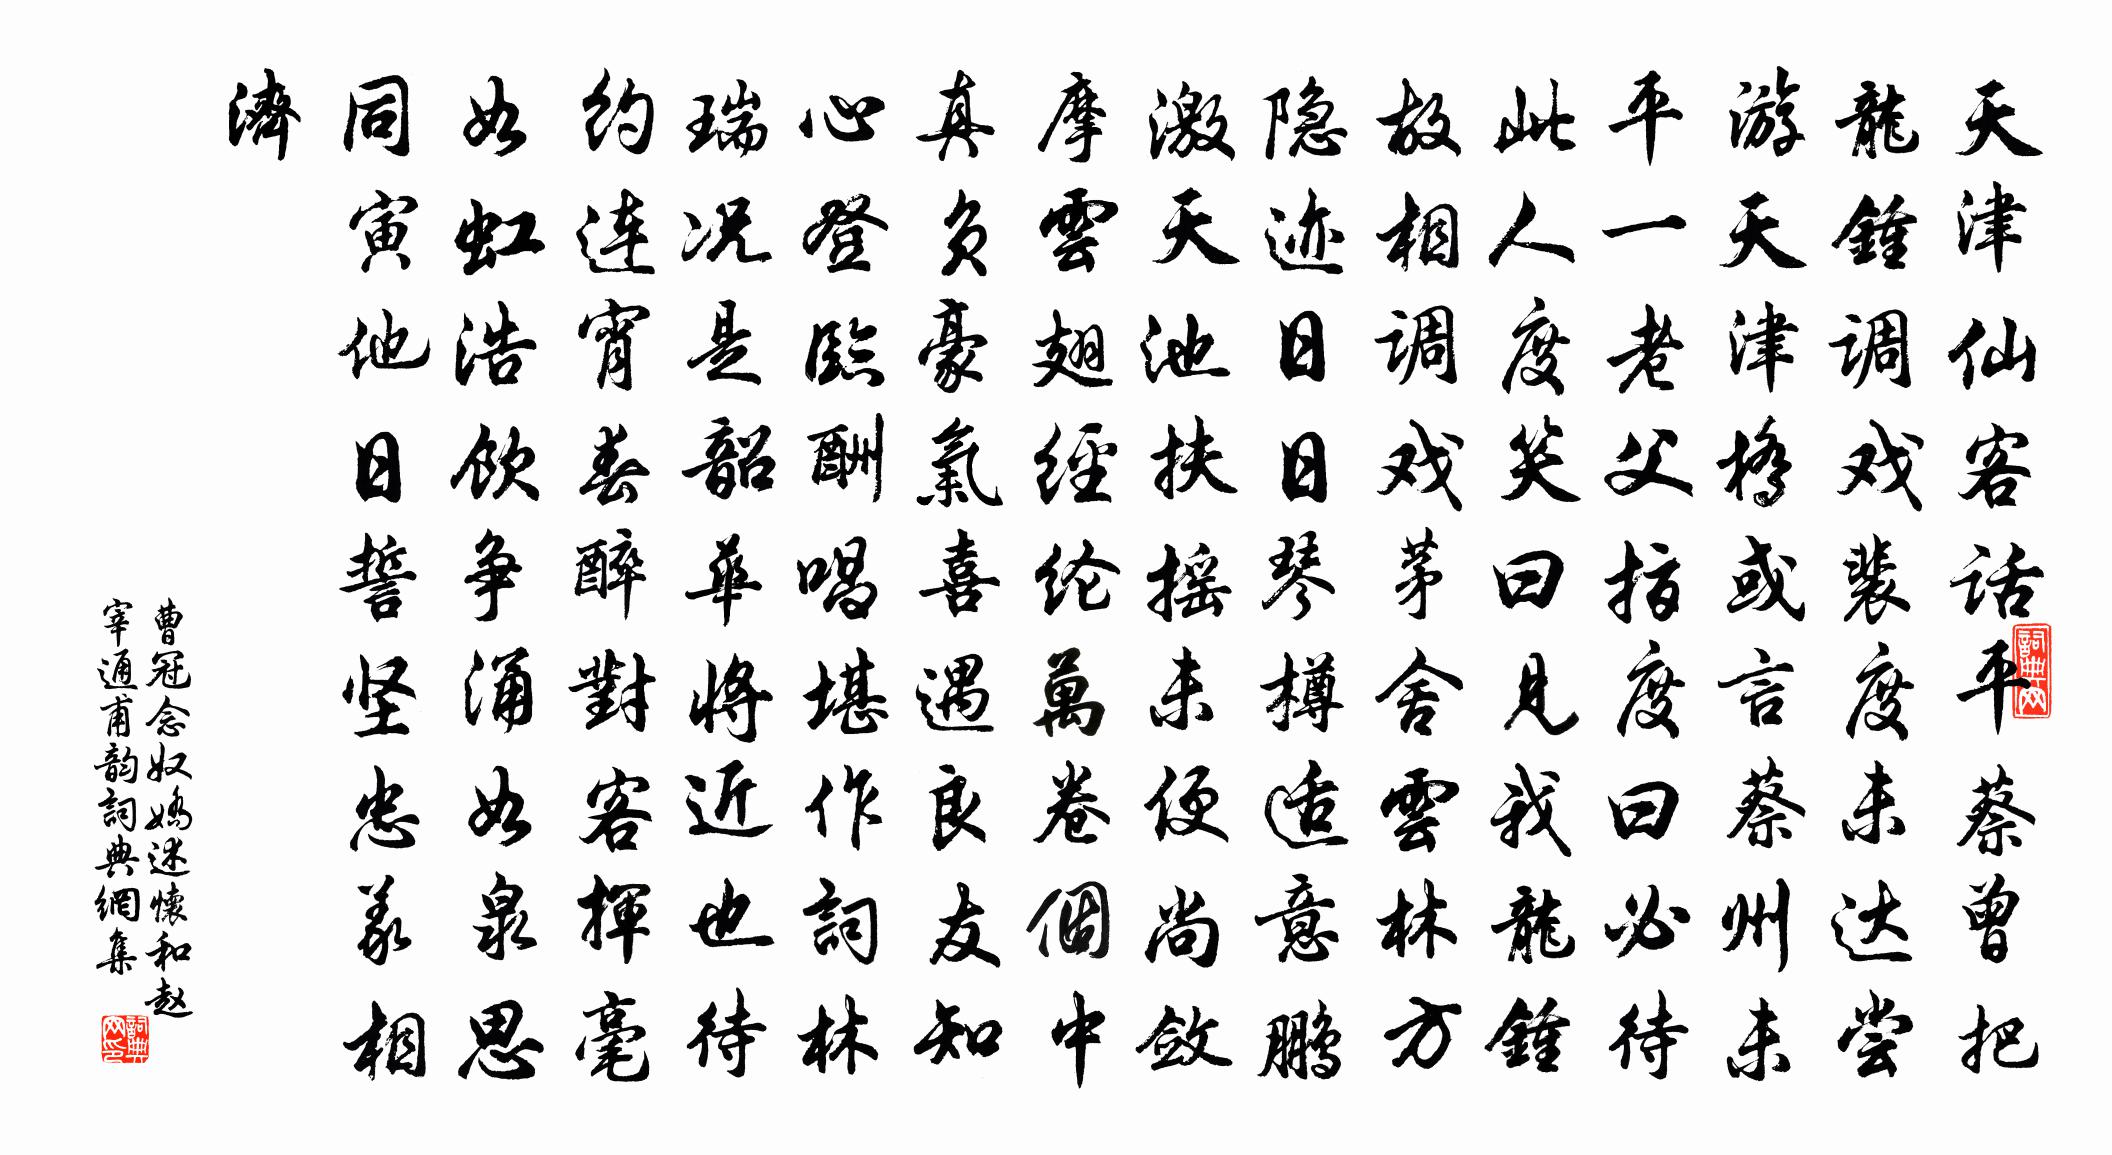 天津仙客话平蔡曾把
龍鍾调戏裴度未达尝
游天津橋或言蔡州未
平一老父指度曰必待
此人度笑曰見我龍鍾
故相调戏茅舍雲林方
隐迹日日琴樽适意鹏
激天池扶摇未便尚斂
摩雲翅經纶萬卷個中
真负豪氣喜遇良友知
心登臨酬唱堪作詞林
瑞况是韶華将近也待
约连宵春醉對客揮毫
如虹浩飲争涌如泉思
同寅他日誓坚忠義相
濟
曹冠念奴嬌述懷和赵
宰通甫韵詞典網集
詞典网
詞典网印